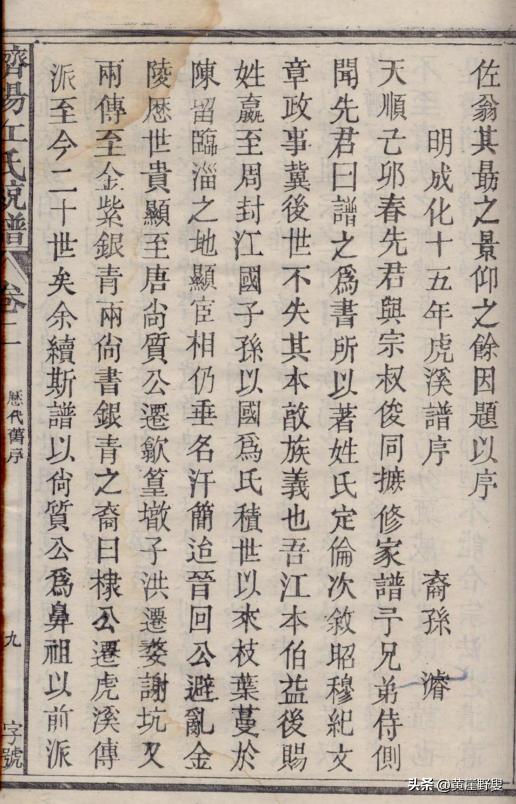 佐翁其勗之景仰之餘因題以序
明成化十五年虎溪譜序　裔孫　濬
天順己卯春先君與宗叔俊同摭修家譜予兄弟侍側
聞先君曰譜之爲書所以著姓氏定倫次敘昭穆紀文
章政事冀後世不失其本敦族義也吾江本伯益後賜
姓嬴至周封江國子孫以國爲氏積世以來枝葉蔓於
陳留臨淄之地顯宦相仍垂名汗簡迨晉回公避亂金
陵歷世貴顯至唐尙質公遷歙篁墩子洪遷婺謝坑又
兩傳至金紫銀青兩尙書銀青之裔曰棣公遷虎溪傳
派至今二十世矣余續斯譜以尙質公爲鼻祖以前派
濟陽江氏統譜
卷二
歷代舊序
九
字號
头条 @黄崖野叟